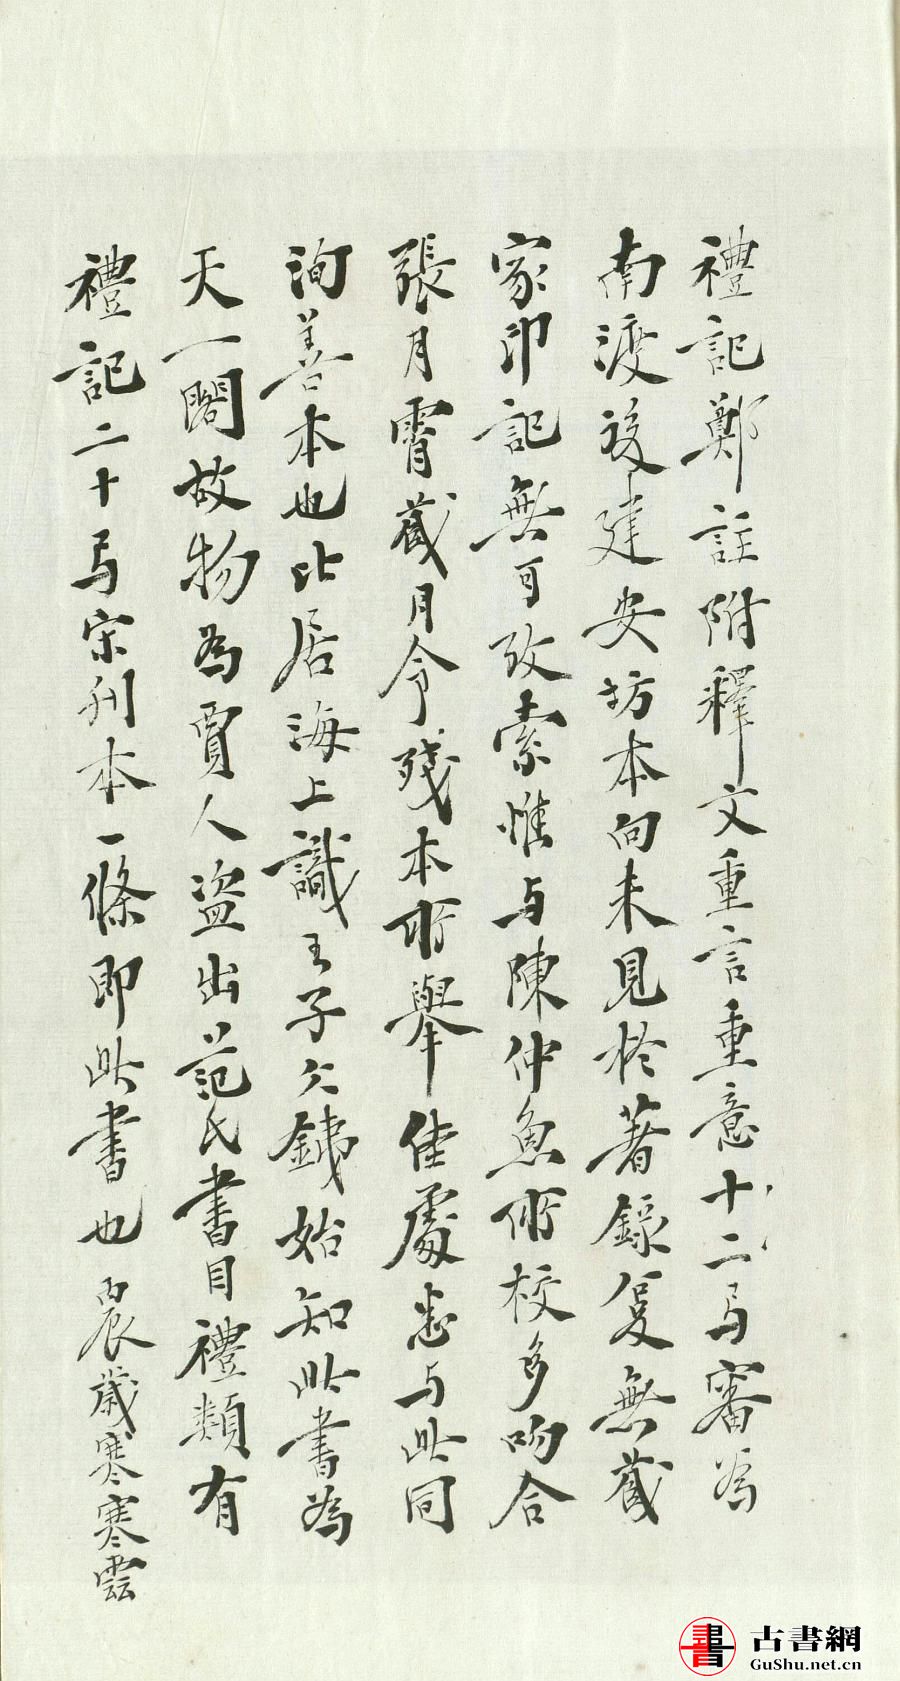 禮記鄭註附釋文重言重意十二㢧審為
南渡後建安坊本向未見於著錄復無藏
家印記無可攷索惟与陳仲魚所校多吻合
張月霄藏月令殘本所舉佳處悉与此同
洵善本也比居海上識王子久銕始知此書為
天一閣故物為賈人盜出范氏書目禮類有
禮記二十㢧宋刊本一條即此書也 晨歲寒寒雲
古書網
GuShu.net.cn